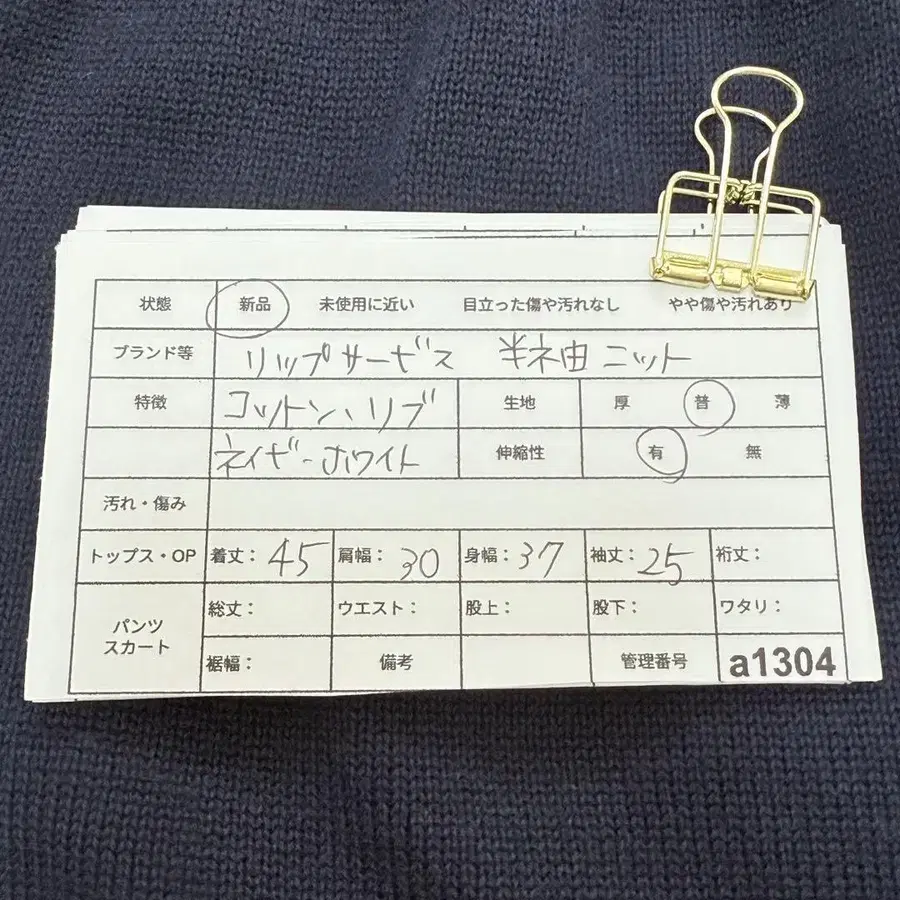 状態 新品 未使用に近い 目立った傷や汚れなし やや傷や汚れあり
ブランド等 リップサービス 半袖 ニット
特徴 コットン、リブ 生地 厚 普 薄
ネイビー ホワイト 伸縮性 有 無
汚れ・傷み
トップス・OP 着丈: 45 肩幅: 30 身幅: 37 袖丈: 25 裄丈:
パンツ スカート 総丈: ウエスト: 股上: 股下: ワタリ:
裾幅: 備考 管理番号 a1304